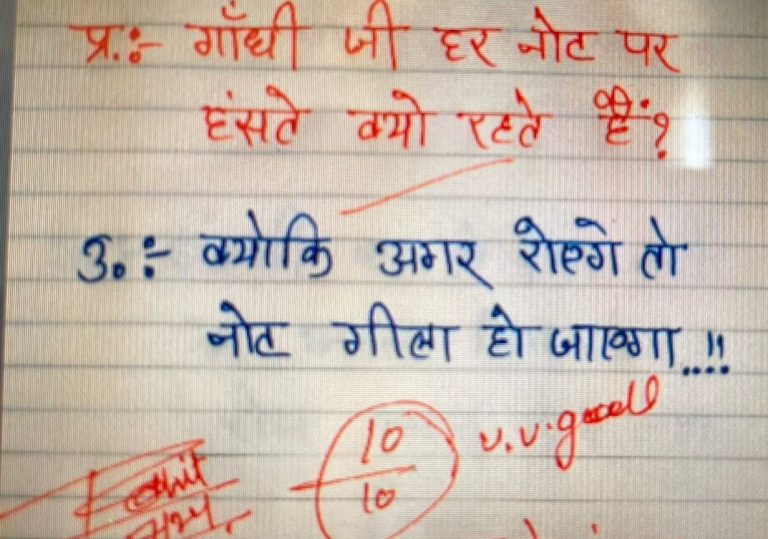 प्र.:- गाँधी जी हर नोट पर
हंसते क्यो रहते हैं?
उ.:- क्योकि अगर रोएगे तो
नोट गीला हो जाएगा....!!
10
10
v.v.good